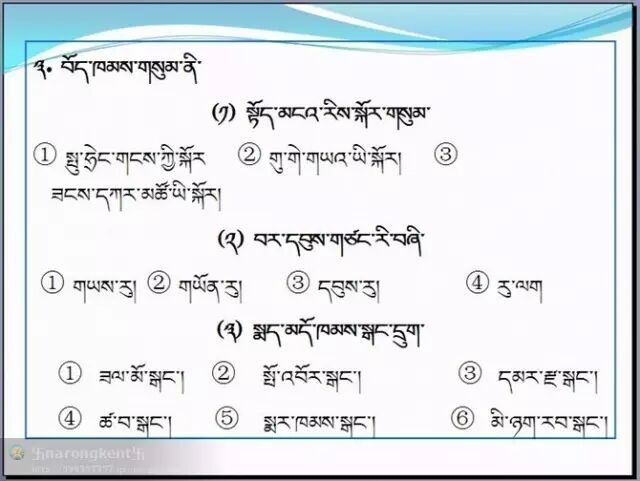 ༣. བོད་ཁམས་གསུམ་ནི་
(༡) སྟོད་མངའ་རིས་སྐོར་གསུམ་
① སྤུ་ཧྲེང་གངས་ཀྱི་སྐོར ② གུ་གེ་གཡའ་ཡི་སྐོར། ③
ཟངས་དཀར་མཚོ་ཡི་སྐོར།
(༢) བར་དབུས་གཙང་རི་བཞི་
① གཡས་རུ། ② གཡོན་རུ། ③ དབུས་རུ། ④ རུ་ལག
(༣) སྨད་མདོ་ཁམས་སྒང་དྲུག་
① ཟལ་མོ་སྒང་། ② སྤོ་འབོར་སྒང་། ③ དམར་རྫ་སྒང་།
④ ཚ་བ་སྒང་། ⑤ སྨར་ཁམས་སྒང་། ⑥ མི་ཉག་རབ་སྒང་།
卐narongkent卐